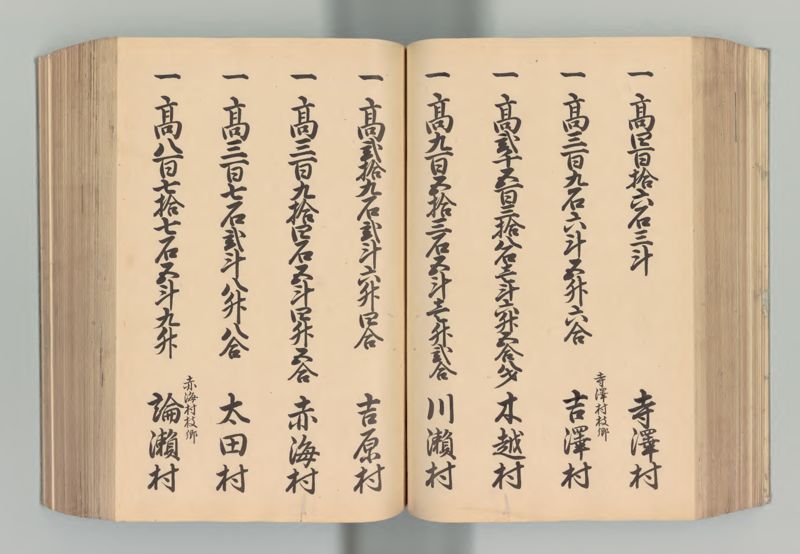 一 高四百拾六石三斗 寺澤村
寺澤村枝郷
一 高三百九石六斗五升六合 吉澤村
一 高貳千五百三拾八石壱斗六升五合 木越村
一 高九百五拾三石五斗壱升貳合 川瀬村
一 高貳拾九石貳斗六升四合 吉原村
一 高三百九拾四石五斗四升五合 赤海村
一 高三百七石貳斗八升八合 太田村
赤海村枝郷
一 高八百七拾七石五斗九升 論瀬村